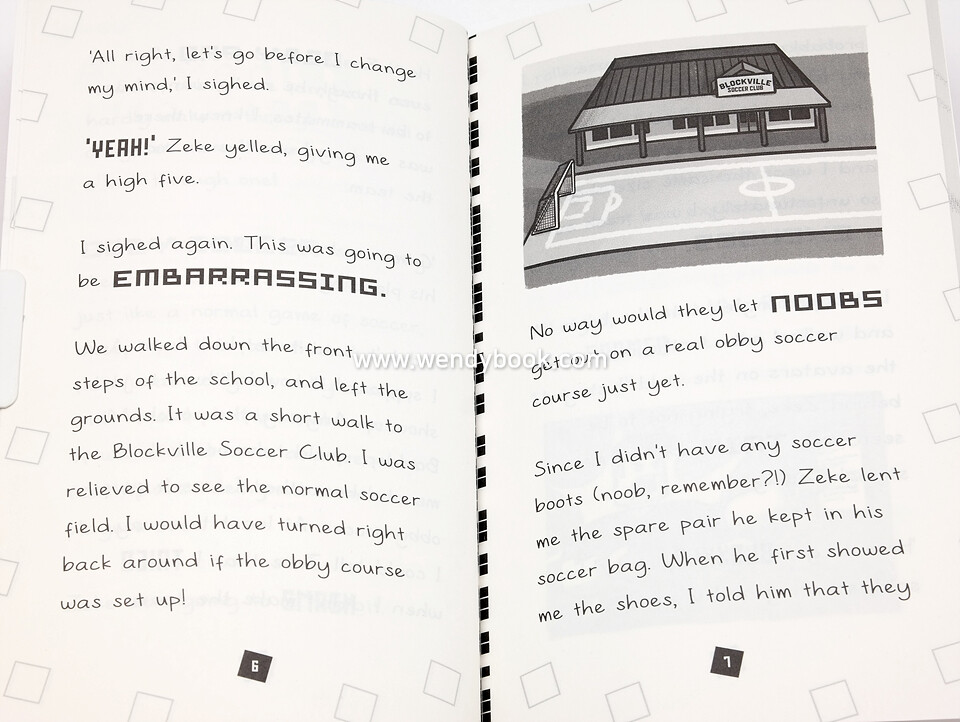 'All right, let's go before I change
my mind,' I sighed.
'YEAH!' Zeke yelled, giving me
a high five.
I sighed again. This was going to
be EMBARRASSING.
We walked down the front
steps of the school, and left the
grounds. It was a short walk to
the Blockville Soccer Club. I was
relieved to see the normal soccer
field. I would have turned right
back around if the obby course
was set up!
6
BLOCKVILLE
SOCCER CLUB
No way would they let NOOBS
get out on a real obby soccer
course just yet.
Since I didn't have any soccer
boots (noob, remember?!) Zeke lent
me the spare pair he kept in his
soccer bag. When he first showed
me the shoes, I told him that they
7
www.wendybook.com